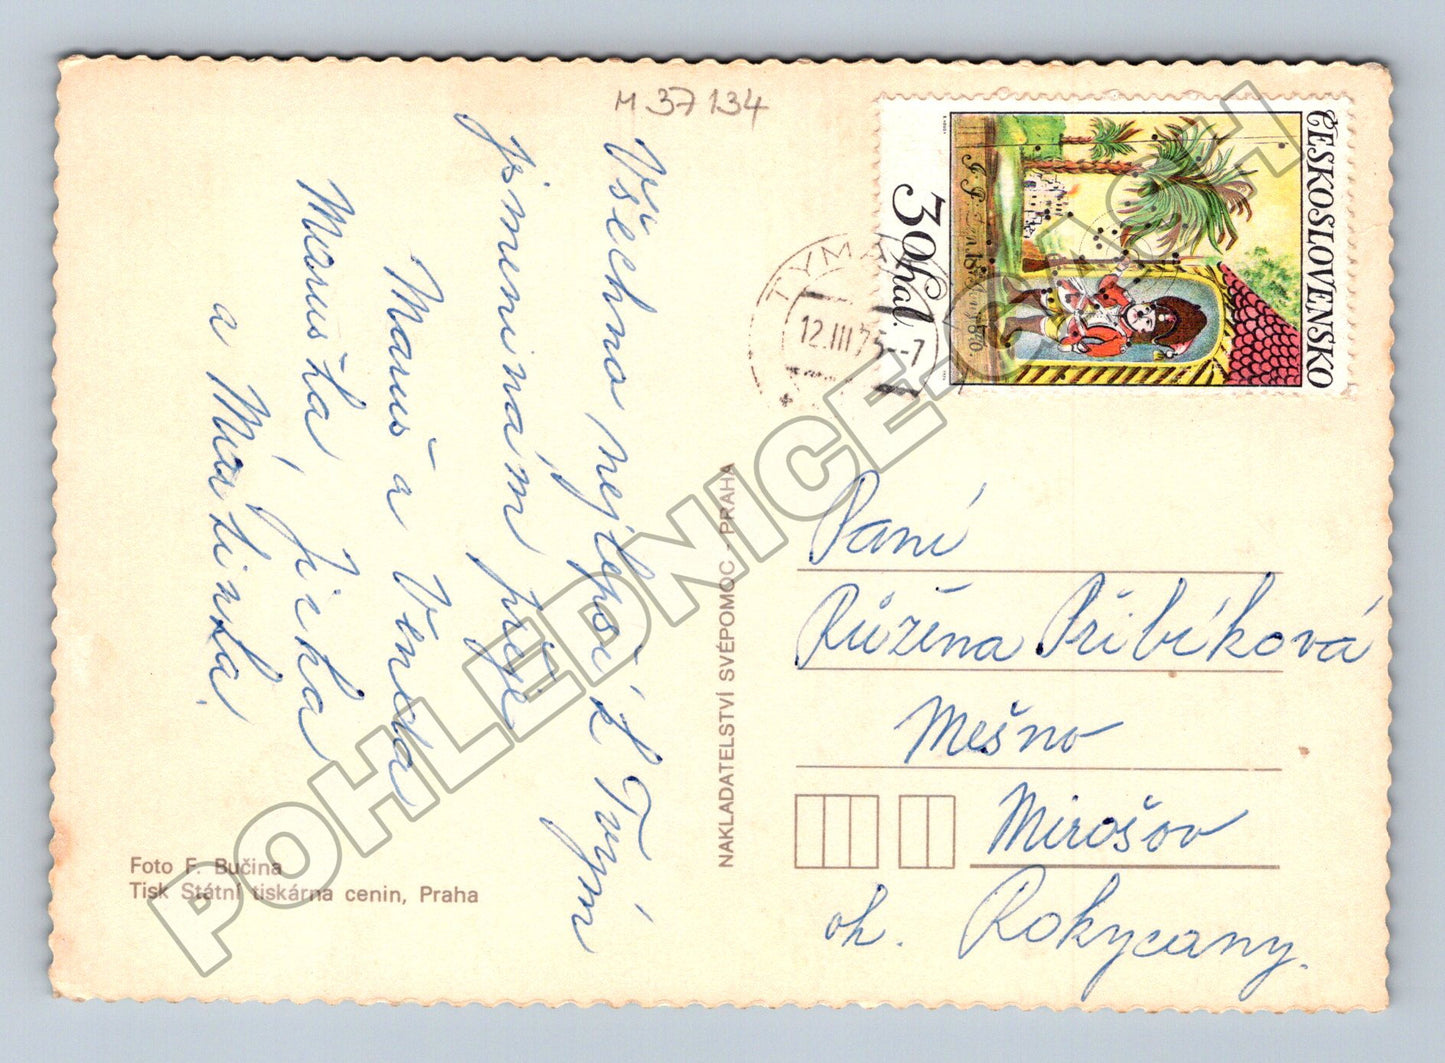 M 37134
Všechno nejlepší k Tvým
jmeninám přeje
Maruš a Venda
Maruška, Jirka
a Martinka.
ČESKOSLOVENSKO
30 hal.
TYMÁK
12.III.75--7
NAKLADATELSTVÍ SVÉPOMOC - PRAHA
Paní
Růžena Přibíková
Mešno
Mirošov
ok. Rokycany.
Foto F. Bučina
Tisk Státní tiskárna cenin, Praha
POHLEDNICE-CACH